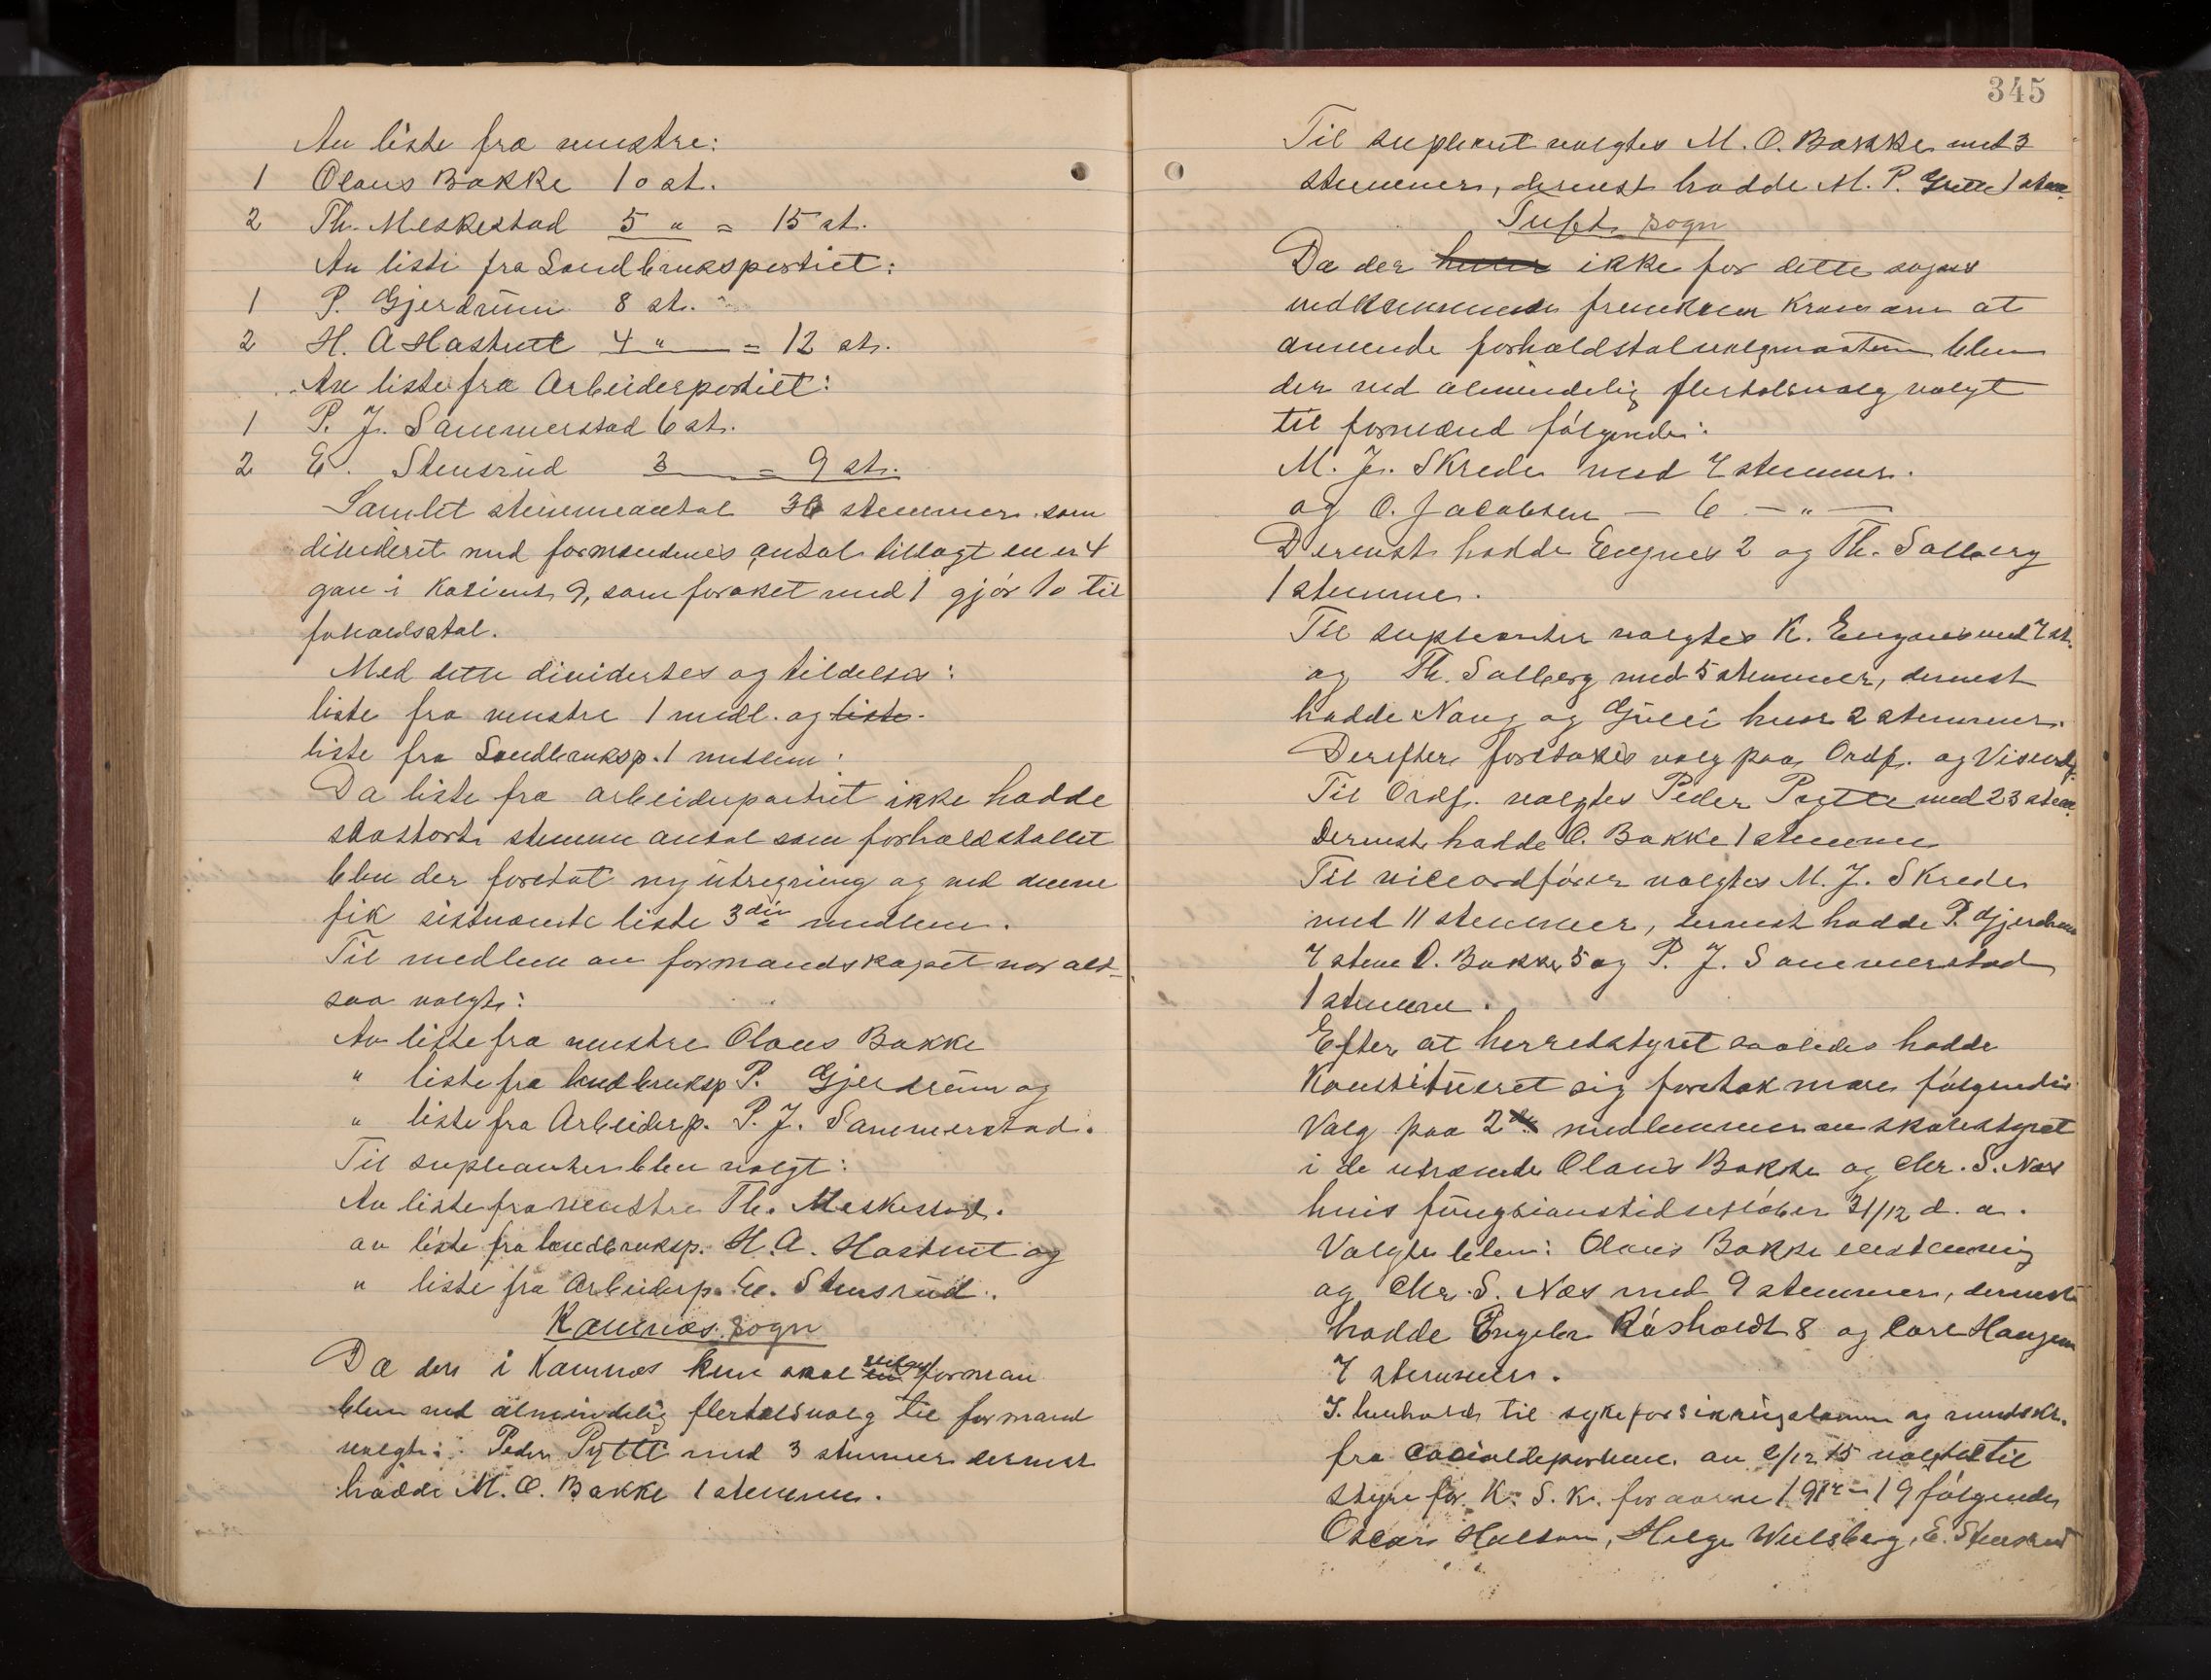 Av liste fra venstre:
1 Olaus Bakke 10 st.
2 Th. Meskestad 5 " = 15 st.
Av liste fra Landbrukspartiet:
1 P. Gjerdrum 8 st. "
2 H. A Hastvett 4 " = 12 st.
Av liste fra Arbeiderpartiet:
1 P. J. Sammerstad 6 st.
2 E. Stensrud 3 = 9 st.
Samlet stemmeantal 36 stemmer som
divideret med formændenes antal tillagt en er 4
gav i kosient 9, som forøket med 1 gjør 10 til
foholdstal.
Med dette divideres og tildeles:
liste fra venstre 1 medl. og liste
liste fra Landbruksp. 1 medlem.
Da liste fra arbeiderpartiet ikke hadde
saastort stemme antal som forholdstallet
blev der foretat ny utregning og ved denne
fik sistnævnte liste 3die medlem.
Til medlem av formandskapet var alt-
saa valgt:
Av liste fra venstre Olaus Bakke
" liste fra landbruksp. P. Gjerdrum og
" liste fra Arbeiderp. P. J. Sammerstad.
Til supleanter blev valgt:
Av liste fra venstre Th. Meskestad.
av liste fra landbruksp. H. A. Hastvet og
" liste fra Arbeiderp. E. Stensrud.
Komnes sogn
Da der i Komnes kun skal en forman
blev ved almindelig flertalsvalg til formand
valgt: Peder Pytte med 3 stemmer dernest
hadde M. O. Bakke 1 stemme.
345
Til supleant valgtes M. O. Bakke med 3
stemmer, dernest hadde M. P. 1 stem.
Tuft sogn
Da der heller ikke for dette sogns
vedkommende fremkom krav om at
anvende forholdstalvalgmaaten blev
der ved almindelig flertalsvalg valgt
til formænd følgende:
M. J. Skrede med 7 stemmer.
og O. Jacobsen — 6 — " —
Dernest hadde Engnes 2 og Th. Solberg
1 stemme.
Til supleanter valgtes K. Engnes med 7 st.
og Th. Solberg med 5 stemmer, dernest
hadde og hver 2 stemmer.
Derefter foretokes valg paa Ordf. og Viseordf.
Til Ordf. valgtes Peder Pytte med 23 stem.
Dernest hadde O. Bakke 1 stemme
Til viceordfører valgtes M. J. Skrede
med 11 stemmer, dernest hadde P. Gjerdrum
7 stem O. Bakke 5 og P. J. Sammerstad
1 stemme.
Efter at herredstyret saaledes hadde
Konstitueret sig foretok man følgende
Valg paa 2 medlemmer av skolestyret
i de uttrædende Olaus Bakke og Chr. S. Næs
hvis fungsionstid utløber 31/12 d. a.
Valgte blev: Olaus Bakke enstemmig
og Chr. S. Næs med 9 stemmer, dernest
hadde Røsholdt 8 og Carl Haugen
7 stemmer.
I henhold til sykeforsikringsloven og rundskr.
fra Socialdepartem. av 15 valgtes til
styre for K. S. K. for aarene 19 følgende
Oscar Halsen, Helge Wulsberg, E. Stensrud